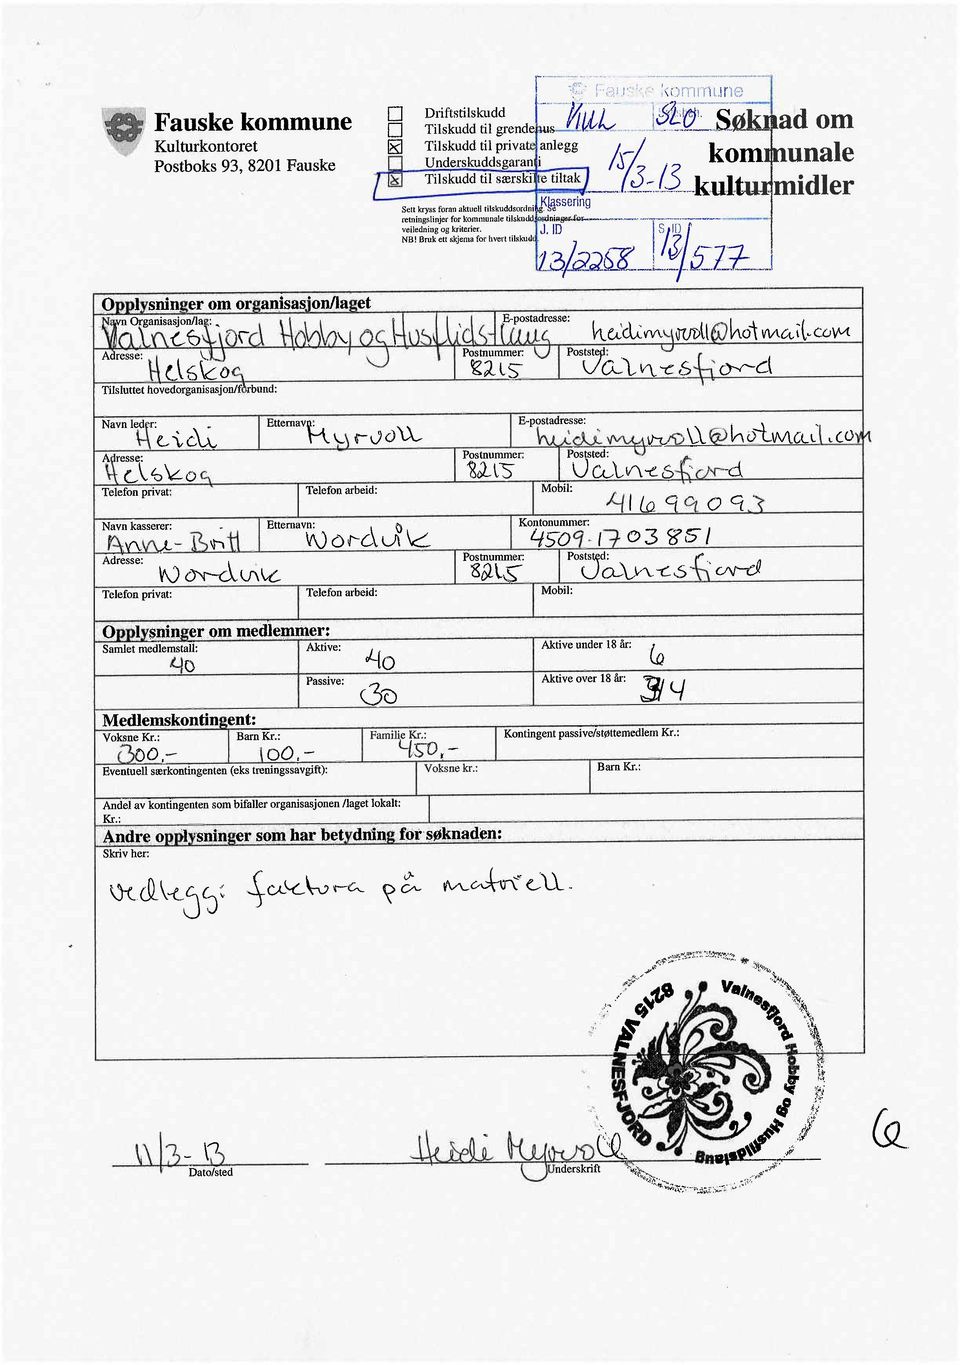 Fauske kommune
Kulturkontoret
Postboks 93, 8201 Fauske
Driftstilskudd
Tilskudd til grendehus
Tilskudd til private anlegg
Underskuddsgaranti
Tilskudd til særskilte tiltak
Sett kryss foran aktuell tilskuddsordning. Se
retningslinjer for kommunale tilskuddsordninger for
veiledning og kriterier.
NB! Bruk ett skjema for hvert tilskudd.
Fauske kommune
KUL SLO
15/3-13
Klassering
J. ID S. ID
13/2258 13/577
Søknad om
kommunale
kulturmidler
Opplysninger om organisasjon/laget
Navn Organisasjon/lag: E-postadresse:
Valnesfjord Hobby og Husflidslaug heidimyrvoll@hotmail.com
Adresse: Postnummer: Poststed:
Helskog 8215 Valnesfjord
Tilsluttet hovedorganisasjon/forbund:
Navn leder: Etternavn: E-postadresse:
Heidi Myrvoll heidimyrvoll@hotmail.com
Adresse: Postnummer: Poststed:
Helskog 8215 Valnesfjord
Telefon privat: Telefon arbeid: Mobil:
41699093
Navn kasserer: Etternavn: Kontonummer:
Anne-Britt Nordvik 4509.1703851
Adresse: Postnummer: Poststed:
Nordvik 8215 Valnesfjord
Telefon privat: Telefon arbeid: Mobil:
Opplysninger om medlemmer:
Samlet medlemstall: Aktive: Aktive under 18 år:
40 40 6
Passive: Aktive over 18 år:
30 34
Medlemskontingent:
Voksne Kr.: Barn Kr.: Familie Kr.: Kontingent passive/støttemedlem Kr.:
300,- 100,- 450,-
Eventuell særkontingenten (eks treningssavgift): Voksne kr.: Barn Kr.:
Andel av kontingenten som bifaller organisasjonen /laget lokalt:
Kr.:
Andre opplysninger som har betydning for søknaden:
Skriv her:
Vedlegg: faktura på matriell.
Valnesfjord Hobby og Husflidslaug
8215 VALNESFJORD
11/3-13 Heidi Myrvoll
Dato/sted Underskrift
6